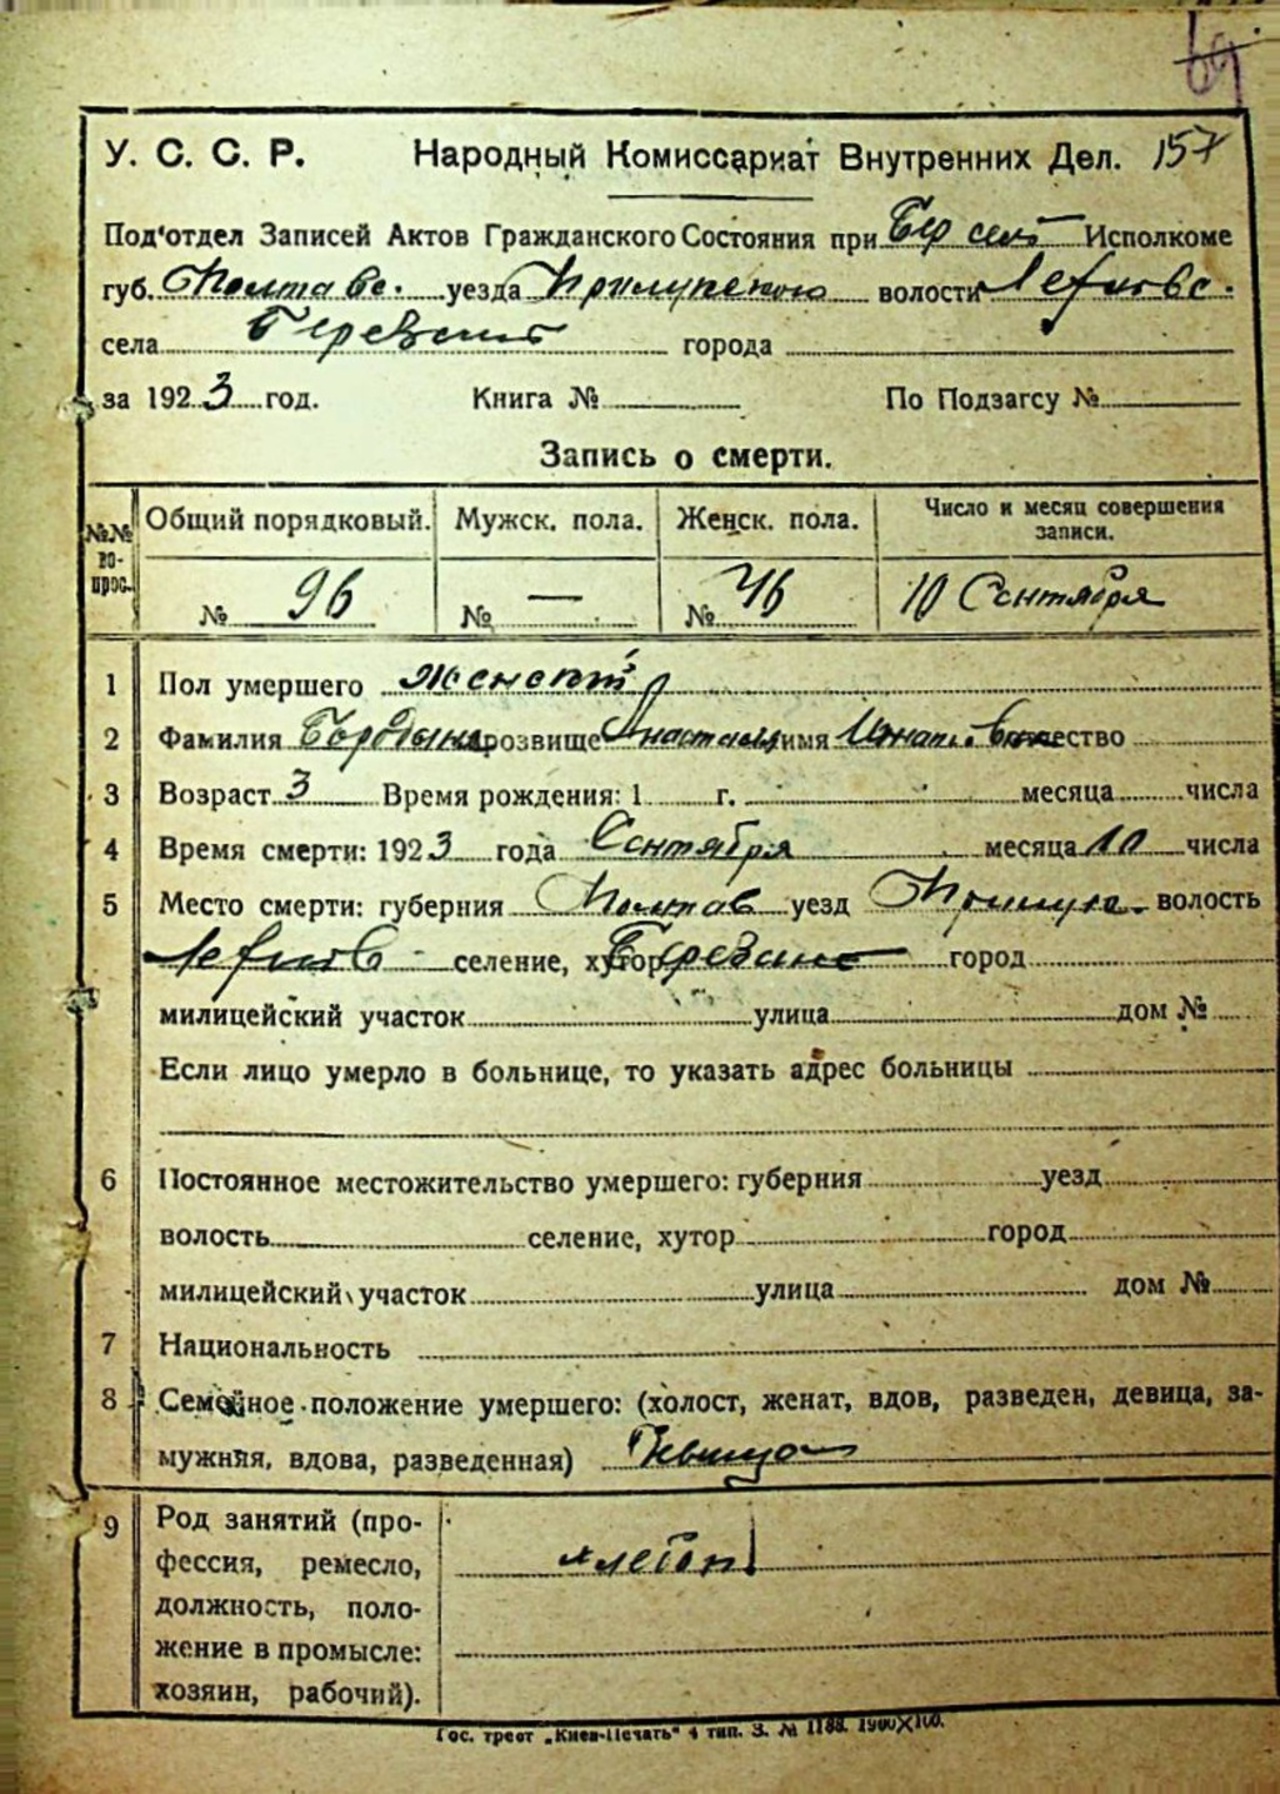 69
У. С. С. Р. Народный Комиссариат Внутренних Дел. 157
Под'отдел Записей Актов Гражданского Состояния при Исполкоме
губ. Полтавс. уезда Прилуцкого волости
села города
за 1923 год. Книга № По Подзагсу №
Запись о смерти.
№№ вопрос. Общий порядковый. Мужск. пола. Женск. пола. Число и месяц совершения записи.
№ 96 № — № 46 10 Сентября
1 Пол умершего женский
2 Фамилия прозвище Анастасия имя отчество
3 Возраст 3 Время рождения: 1 г. месяца числа
4 Время смерти: 1923 года Сентября месяца 10 числа
5 Место смерти: губерния Полтав уезд Прилук. волость
селение, хутор город
милицейский участок улица дом №
Если лицо умерло в больнице, то указать адрес больницы
6 Постоянное местожительство умершего: губерния уезд
волость селение, хутор город
милицейский участок улица дом №
7 Национальность
8 Семейное положение умершего: (холост, женат, вдов, разведен, девица, за-
мужняя, вдова, разведенная) Девица
9 Род занятий (про-
фессия, ремесло, хлебоп
должность, поло-
жение в промысле:
хозяин, рабочий).
Гос. трест „Киев-Печать" 4 тип. З. № 1188. 1900X100.